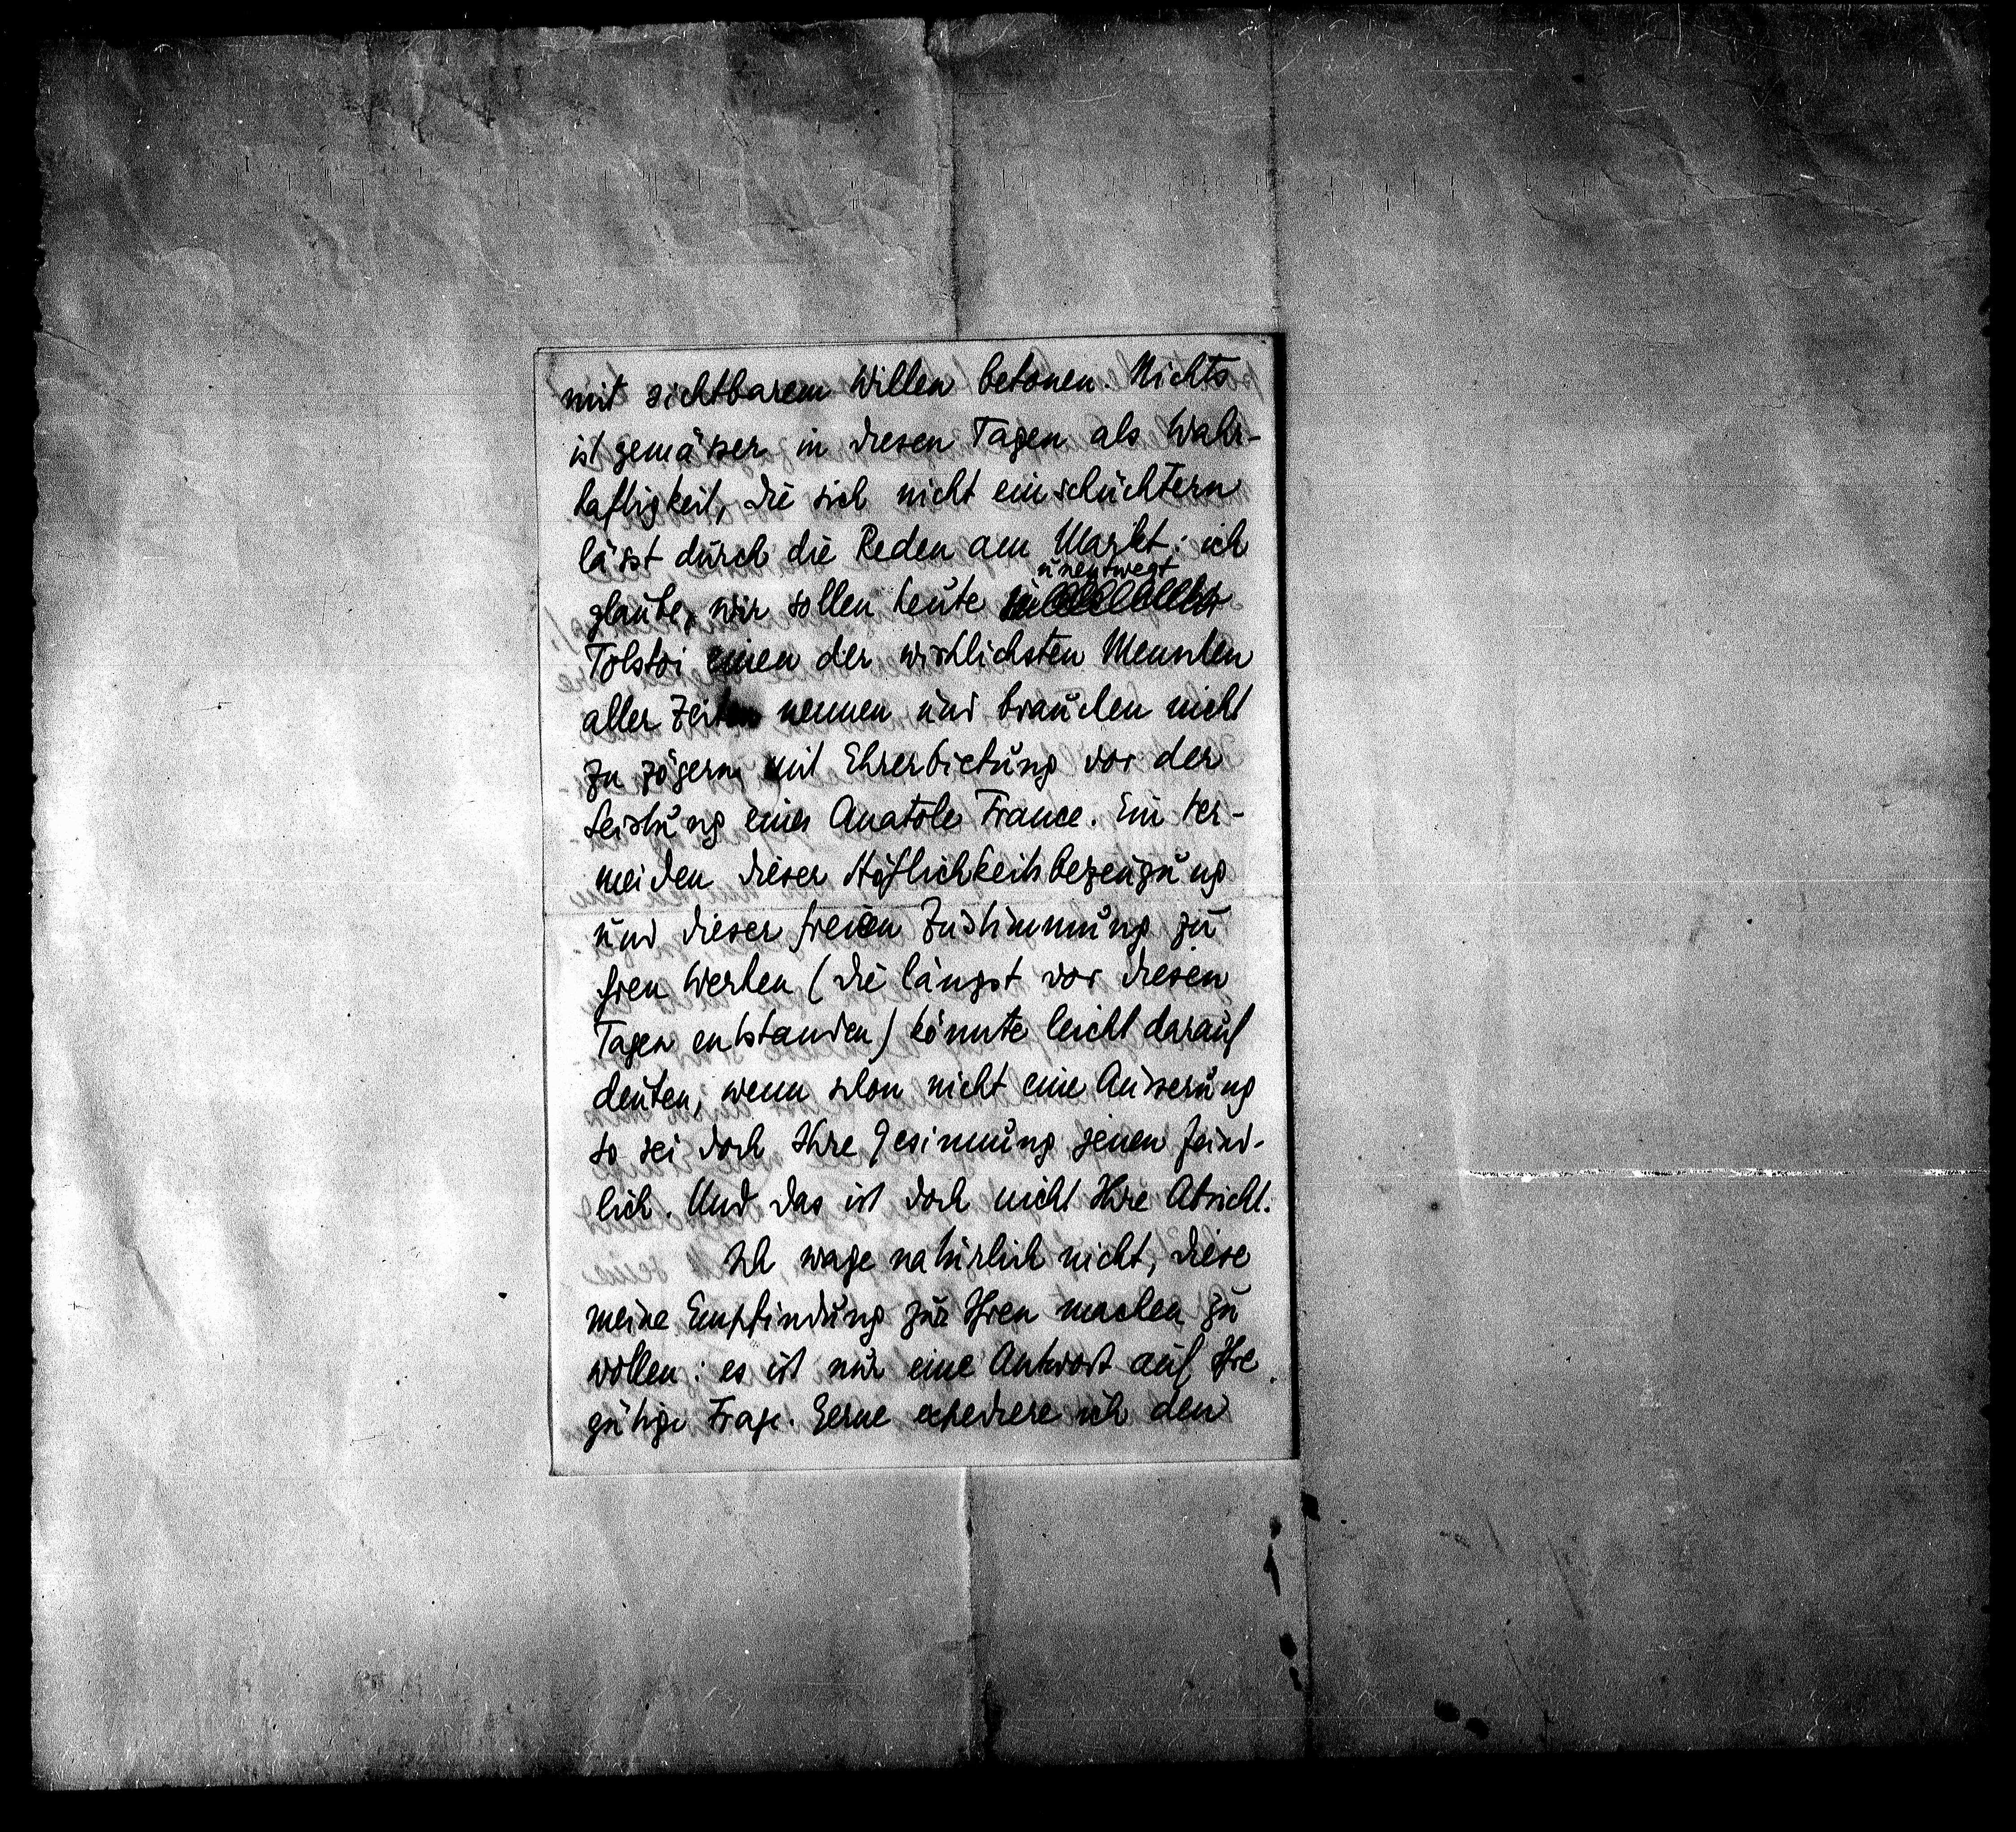 mit sichtbarem Willen betonen. Nichts
ist gemässer in diesen Tagen als Wahr-
haftigkeit, die sich nicht einschüchtern
lässt durch die Reden am Markt: ich
unentwegt
glaube, wir sollen heute
Tolstoi einen der wirklichsten Menschen
aller Zeiten nennen und brauchen nicht
zu zögern mit Ehrerbietung vor der
Leistung eines Anatole France. Ein Ver-
meiden dieser Höflichkeitsbezeugung
und dieser freien Zustimmung zu
ihren Werken (die längst vor diesen
Tagen entstanden) könnte leicht darauf
deuten, wenn schon nicht eine Äusserung
so sei doch Ihre Gesinnung jenen feind-
lich. Und das ist doch nicht Ihre Absicht.
Ich wage natürlich nicht, diese
meine Empfindung zur Ihren machen zu
wollen: es ist nur eine Antwort auf Ihre
gütige Frage. Gerne expediere ich den